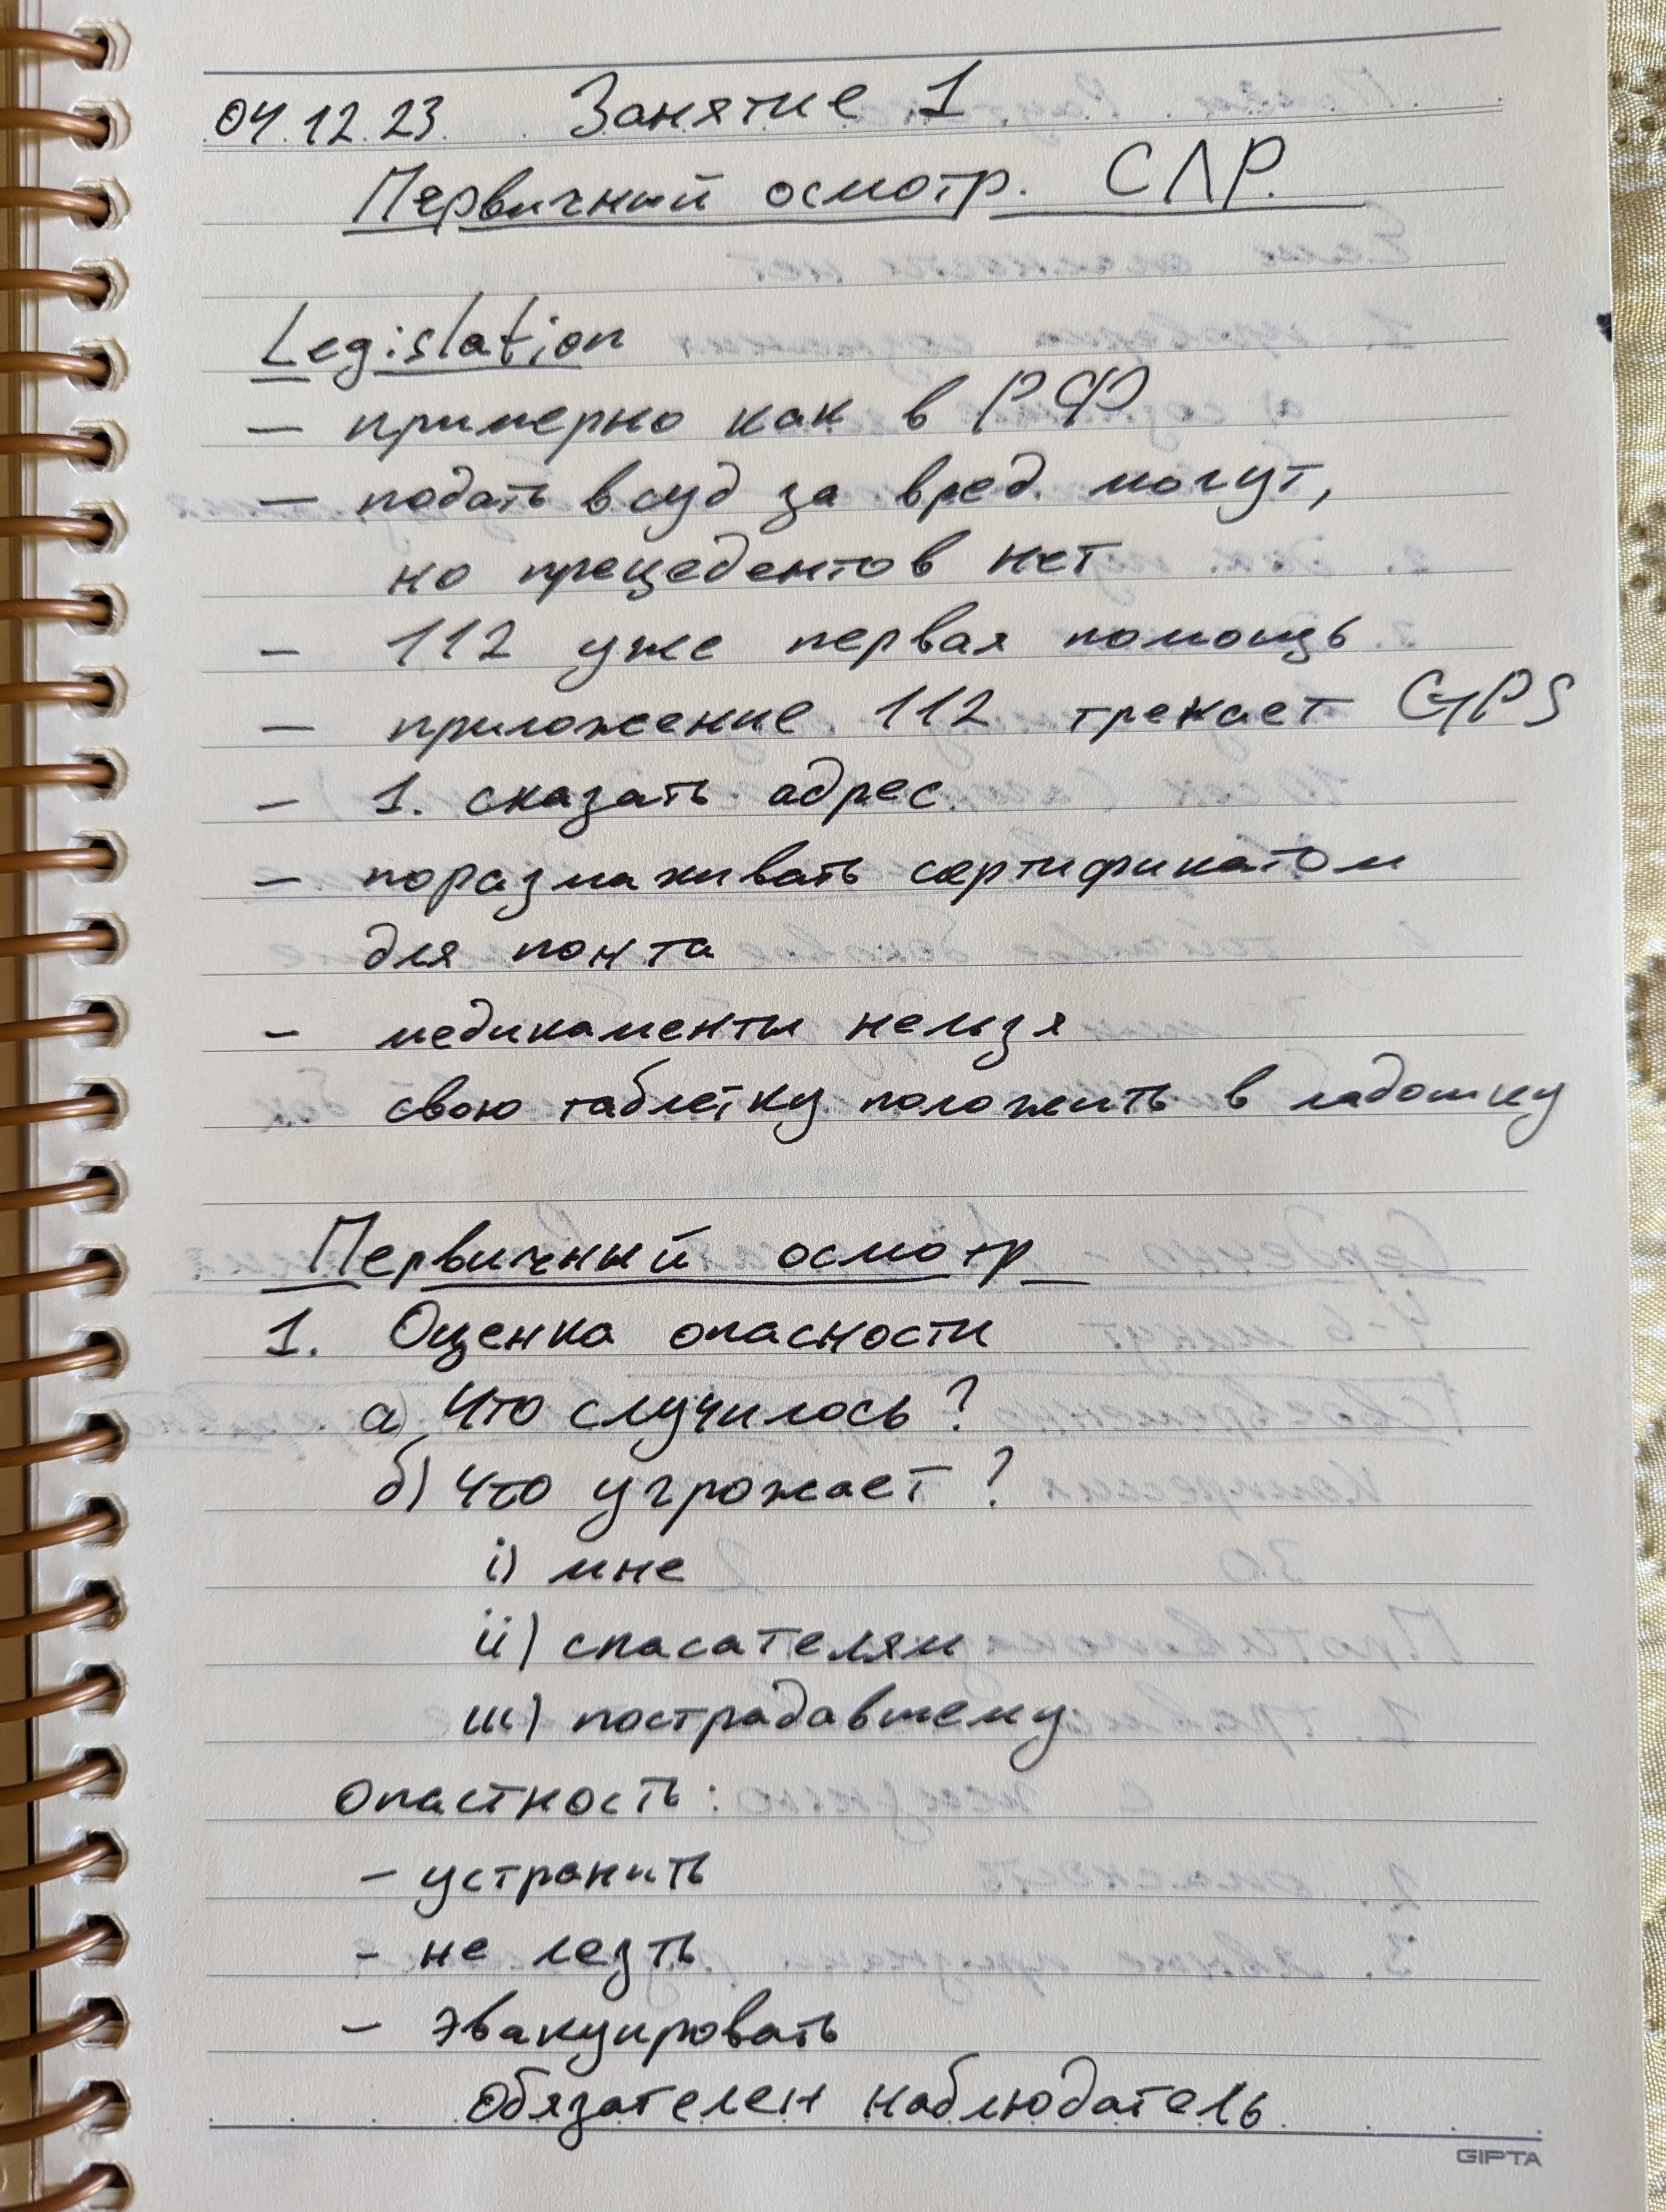 04.12.23 Занятие 1
Первичный осмотр. СЛР.
Legislation
– примерно как в РФ
– подать в суд за вред. могут,
но прецедентов нет
– 112 уже первая помощь
– приложение 112 трекает GPS
– 1. сказать адрес
– поразмахивать сертификатом
для понта
– медикаменты нельзя
свою таблетку положить в ладошку
Первичный осмотр
1. Оценка опасности
а) Что случилось?
б) Что угрожает?
i) мне
ii) спасателям
iii) пострадавшему
опастность:
– устранить
– не лезть
– эвакуировать
Обязателен наблюдатель
GIPTA